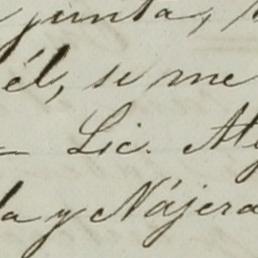 junta,
él, se me
Lic. 
y Nájera